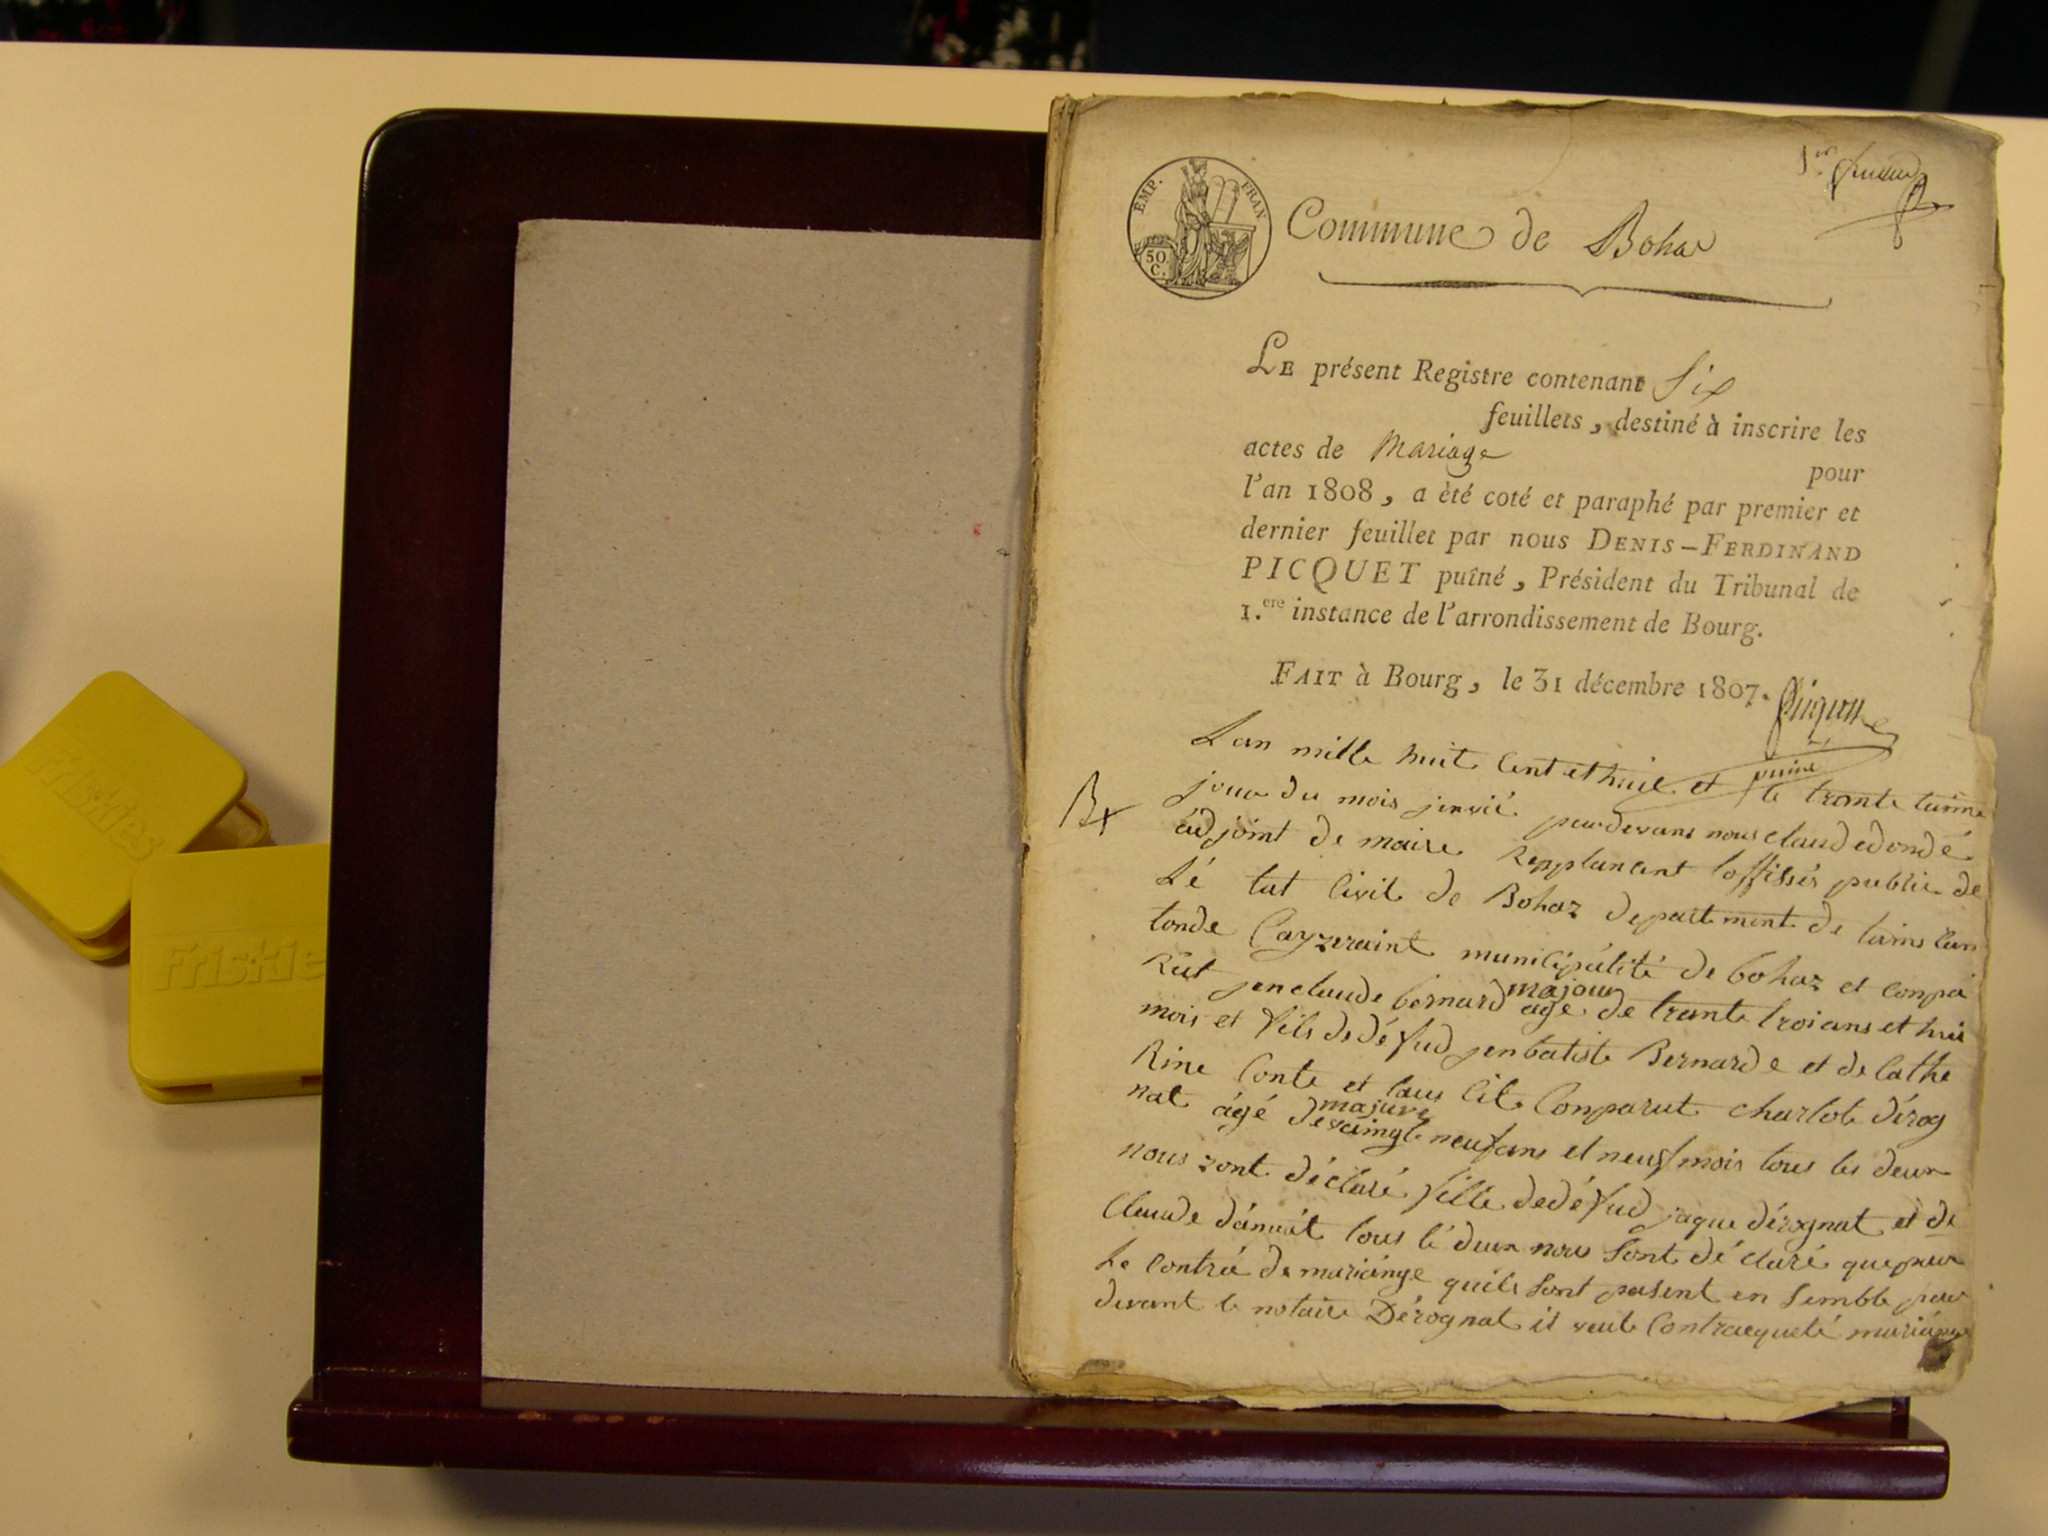 EMP. FRAN
50 C.
1er feuillet
Commune de Bohas
LE présent Registre contenant six
feuillets, destiné à inscrire les
actes de mariage
pour
l'an 1808, a èté coté et paraphé par premier et
dernier feuillet par nous DENIS-FERDINAND
PICQUET puîné, Président du Tribunal de
1.ere instance de l'arrondissement de Bourg.
FAIT à Bourg, le 31 décembre 1807.
puiné
Lan mille huit Cent et huit et le trante
jour du mois janvié pardevant nous claude
adjoint de maire Repplancent loffissés public de
Lé tat Civil de Bohaz départment de lains Can
tonde Cayzeraint municipálité de bohaz et Conpa
Rut jenclaude bernard majour age de trante troi ans et hui
mois et fils de défud jenbatiste Bernarde et de Cathe
Rine Conte et Cit Conparut charlote dérog
nat ágé majure devaingt neufans et neuf mois tous les deux
nous zont déclaré fille dedéfud jaque dérognat et de
Claude tous lé deux nous sont dé claré quepar
Le Contrá de mariánge quils sont pasent en semble par
devant le notaire Dérognat il veule Contracqueté mariánge
Friskies
Friskie